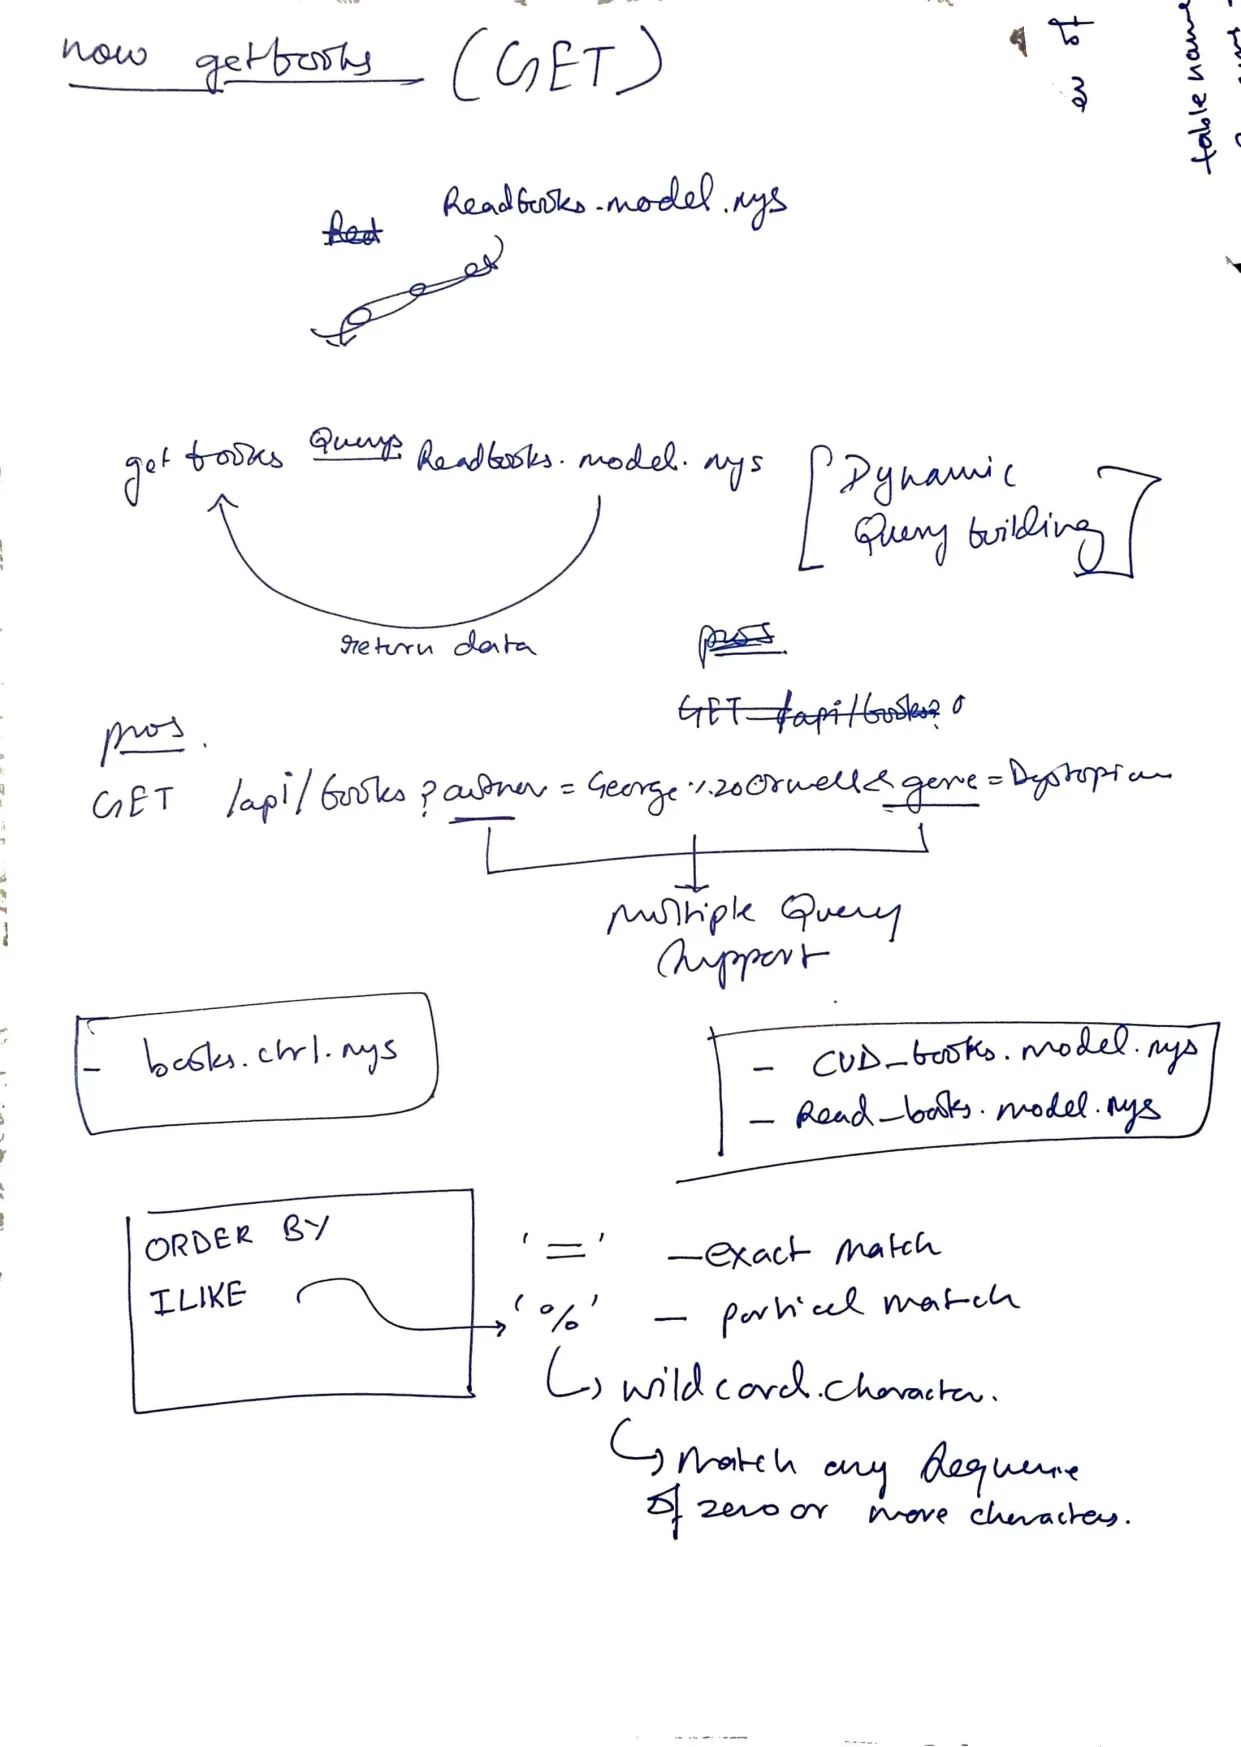 now getbooks (GET)
er of
table name
Readbooks.model.nys
Red
get books Querys Readbooks.model.nys [Dynamic
Query building]
return data
pros
GET /api/books?
pros.
GET /api/books?author=George%20Orwell&genre=Dystopian
Multiple Query
Support
- books.ctrl.nys
- CUD_books.model.nys
- Read_books.model.nys
ORDER BY
ILIKE
'=' - exact match
'%' - partical match
wild card.character.
Match any sequence
of zero or more characters.